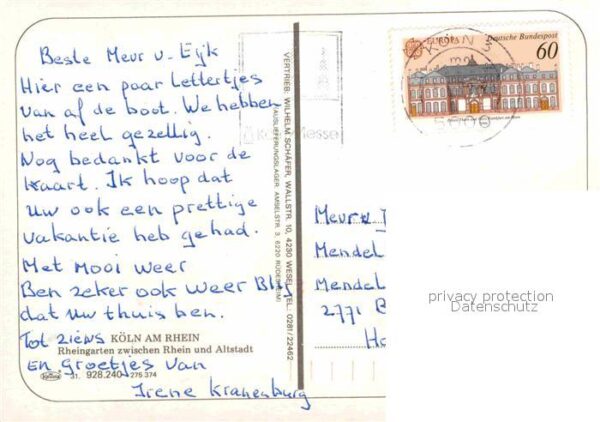 Beste Mevr v. Eijk
Hier een paar Lettertjes
van af de boot. We hebben
het heel gezellig.
Nog bedankt voor de
kaart. Ik hoop dat
uw ook een prettige
vakantie heb gehad.
Met Mooi weer
Ben zeker ook weer Blij
dat uw thuis ben.
Tot ziens
KÖLN AM RHEIN
Rheingarten zwischen Rhein und Altstadt
En Groetjes van
31. 928.240 275 374
Irene Kranenburg
VERTRIEB: WILHELM SCHÄFER, WALLSTR. 10, 4230 WESEL, TEL.: 0281/22462
(AUSLIEFERUNGSLAGER: AMSELSTR. 3, 6220 RÜDESHEIM)
Messe
EUROPA
Deutsche Bundespost
60
KÖLN
Mevr v
Mendel
Mendel
2771 B
Ho
privacy protection
Datenschutz